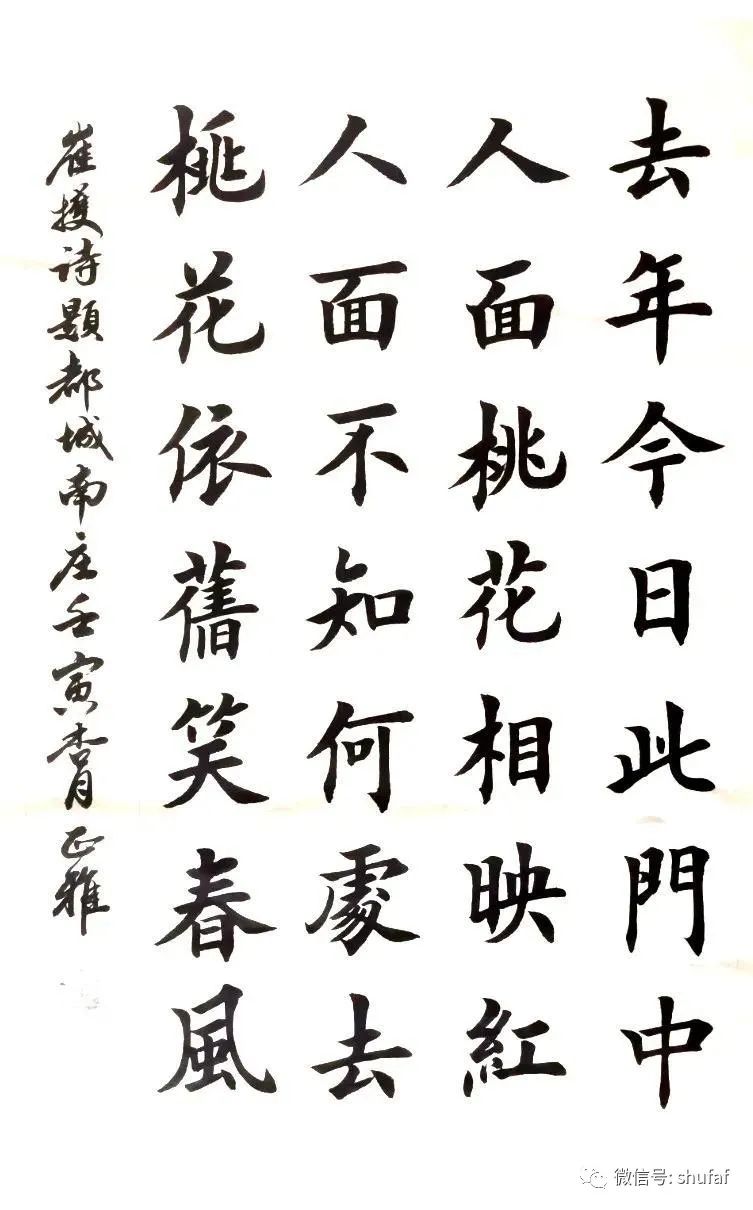 去年今日此門中
人面桃花相映紅
人面不知何處去
桃花依舊笑春風
崔護诗題都城南庄壬寅杏月正雅
微信号: shufaf